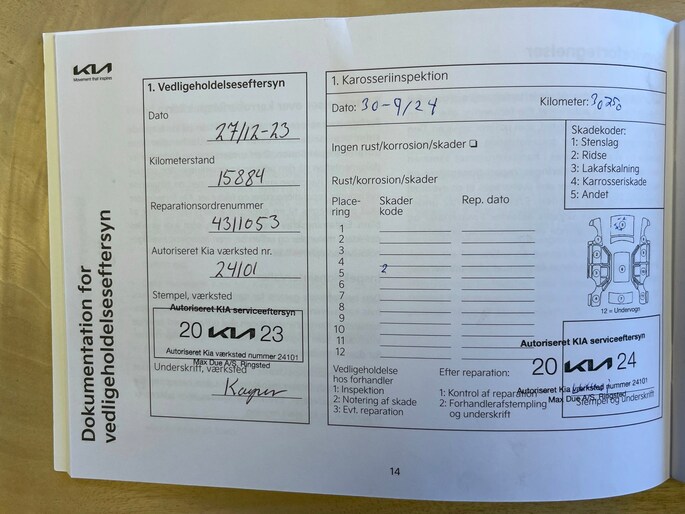 KIA
Movement that inspires
Dokumentation for
vedligeholdelseseftersyn
1. Vedligeholdelseseftersyn
Dato
27/12-23
Kilometerstand
15884
Reparationsordrenummer
4311053
Autoriseret Kia værksted nr.
24101
Stempel, værksted
Autoriseret KIA serviceeftersyn
20 KIA 23
Autoriseret Kia værksted nummer 24101
Max Due A/S, Ringsted
Underskrift, værksted
1. Karosseriinspektion
Dato: 30-9/24 Kilometer: 30250
Ingen rust/korrosion/skader
Skadekoder:
1: Stenslag
2: Ridse
3: Lakafskalning
4: Karrosseriskade
5: Andet
Rust/korrosion/skader
Place-
ring
Skader
kode
Rep. dato
1
2
3
4
5 2
6
7
8
9
10
11
12
12 = Undervogn
Vedligeholdelse
hos forhandler
1: Inspektion
2: Notering af skade
3: Evt. reparation
Efter reparation:
1: Kontrol af reparation
2: Forhandlerafstempling
og underskrift
Autoriseret KIA serviceeftersyn
20 KIA 24
Autoriseret Kia værksted nummer 24101
Max Due A/S, Ringsted
Stempel og underskrift
14